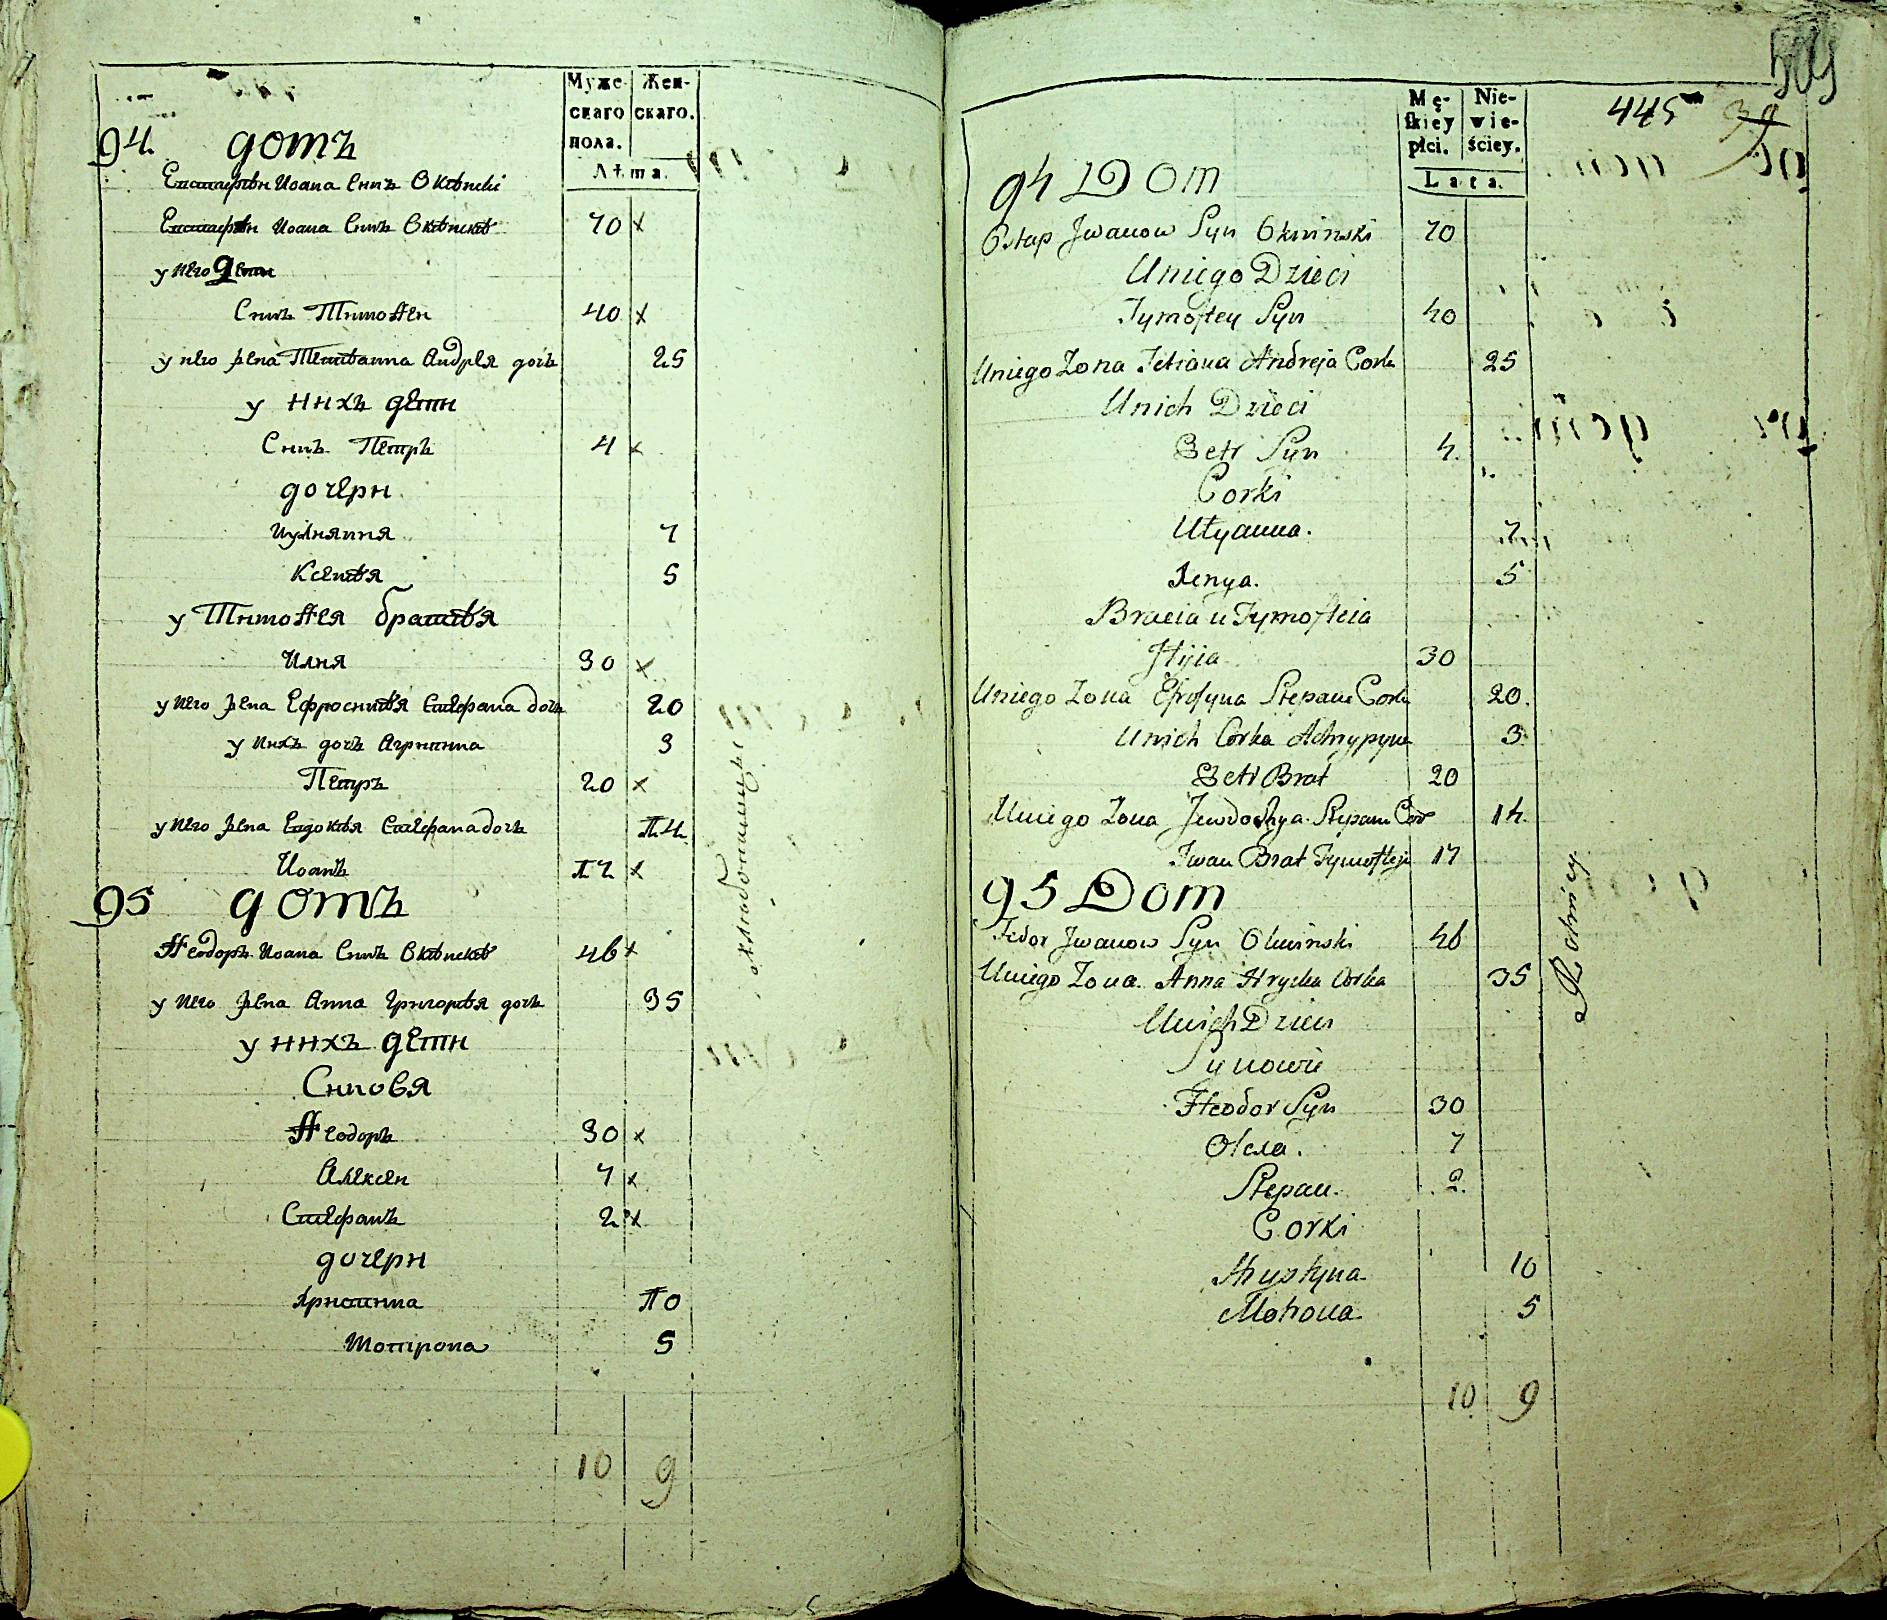 Муже- Жен-
скаго скаго.
пола.
Лѣта.
94. домъ
Евстафѣи Иоана Снъ Окѣнскі
Евстафѣи Иоана Снъ Окѣнскѣ 70 x
у него Дети
Снъ Тимоѳеи 40 x
у него жена Тетѣанна Андрея доч 25
у нихъ дети
Снъ Петръ 4 x
дочери
Иулияния 7
Ксенѣя 5
у Тимоѳея братѣя
Илия 30 x
у него жена Ефросинѣя Стефана доч 20
у нихъ доч Агрипина 3
Петръ 20 x
у него жена Евдокѣя Стефана доч 14
Иоанъ 17 x
95 домъ
Ѳеодоръ Иоана Снъ Окѣнскѣ 46 x
у него жена Анна Григорѣя доч 35
у нихъ дети
Синовя
Ѳеодоръ 30 x
Алексеи 7 x
Стефанъ 2 x
дочери
Христина 10
Мотрона 5
10 9
509
445
Mę- Nie-
skiey wie-
płci. ściey.
Lata.
94 Dom
Ostap Jwanow Syn Okninski 70
Uniego Dzieci
Tymoftey Syn 40
Uniego Zona Tetiana Andreja Cork 25
Unich Dzieci
Petr Syn 4.
Corki
Ulyanna. 7
Xenya. 5
Bracia u Tymofteia
Jlyia 30
Uniego Zona Efrosyna Stepana Cork 20.
Unich Corka Ahrypyna 3
Petr Brat 20
Uniego Zona Jewdochya Stepana Cor 14
Jwan Brat Tymofteja 17
95 Dom
Fedor Jwanow Syn Okninski 46
Uniego Zona Anna Hrycka Corka 35
Unich Dzieci
Synowie
Fteodor Syn 30
Olexa. 7
Stepan. 2.
Corki
Hrystyna 10
Motrona 5
10 9
Rolnicy